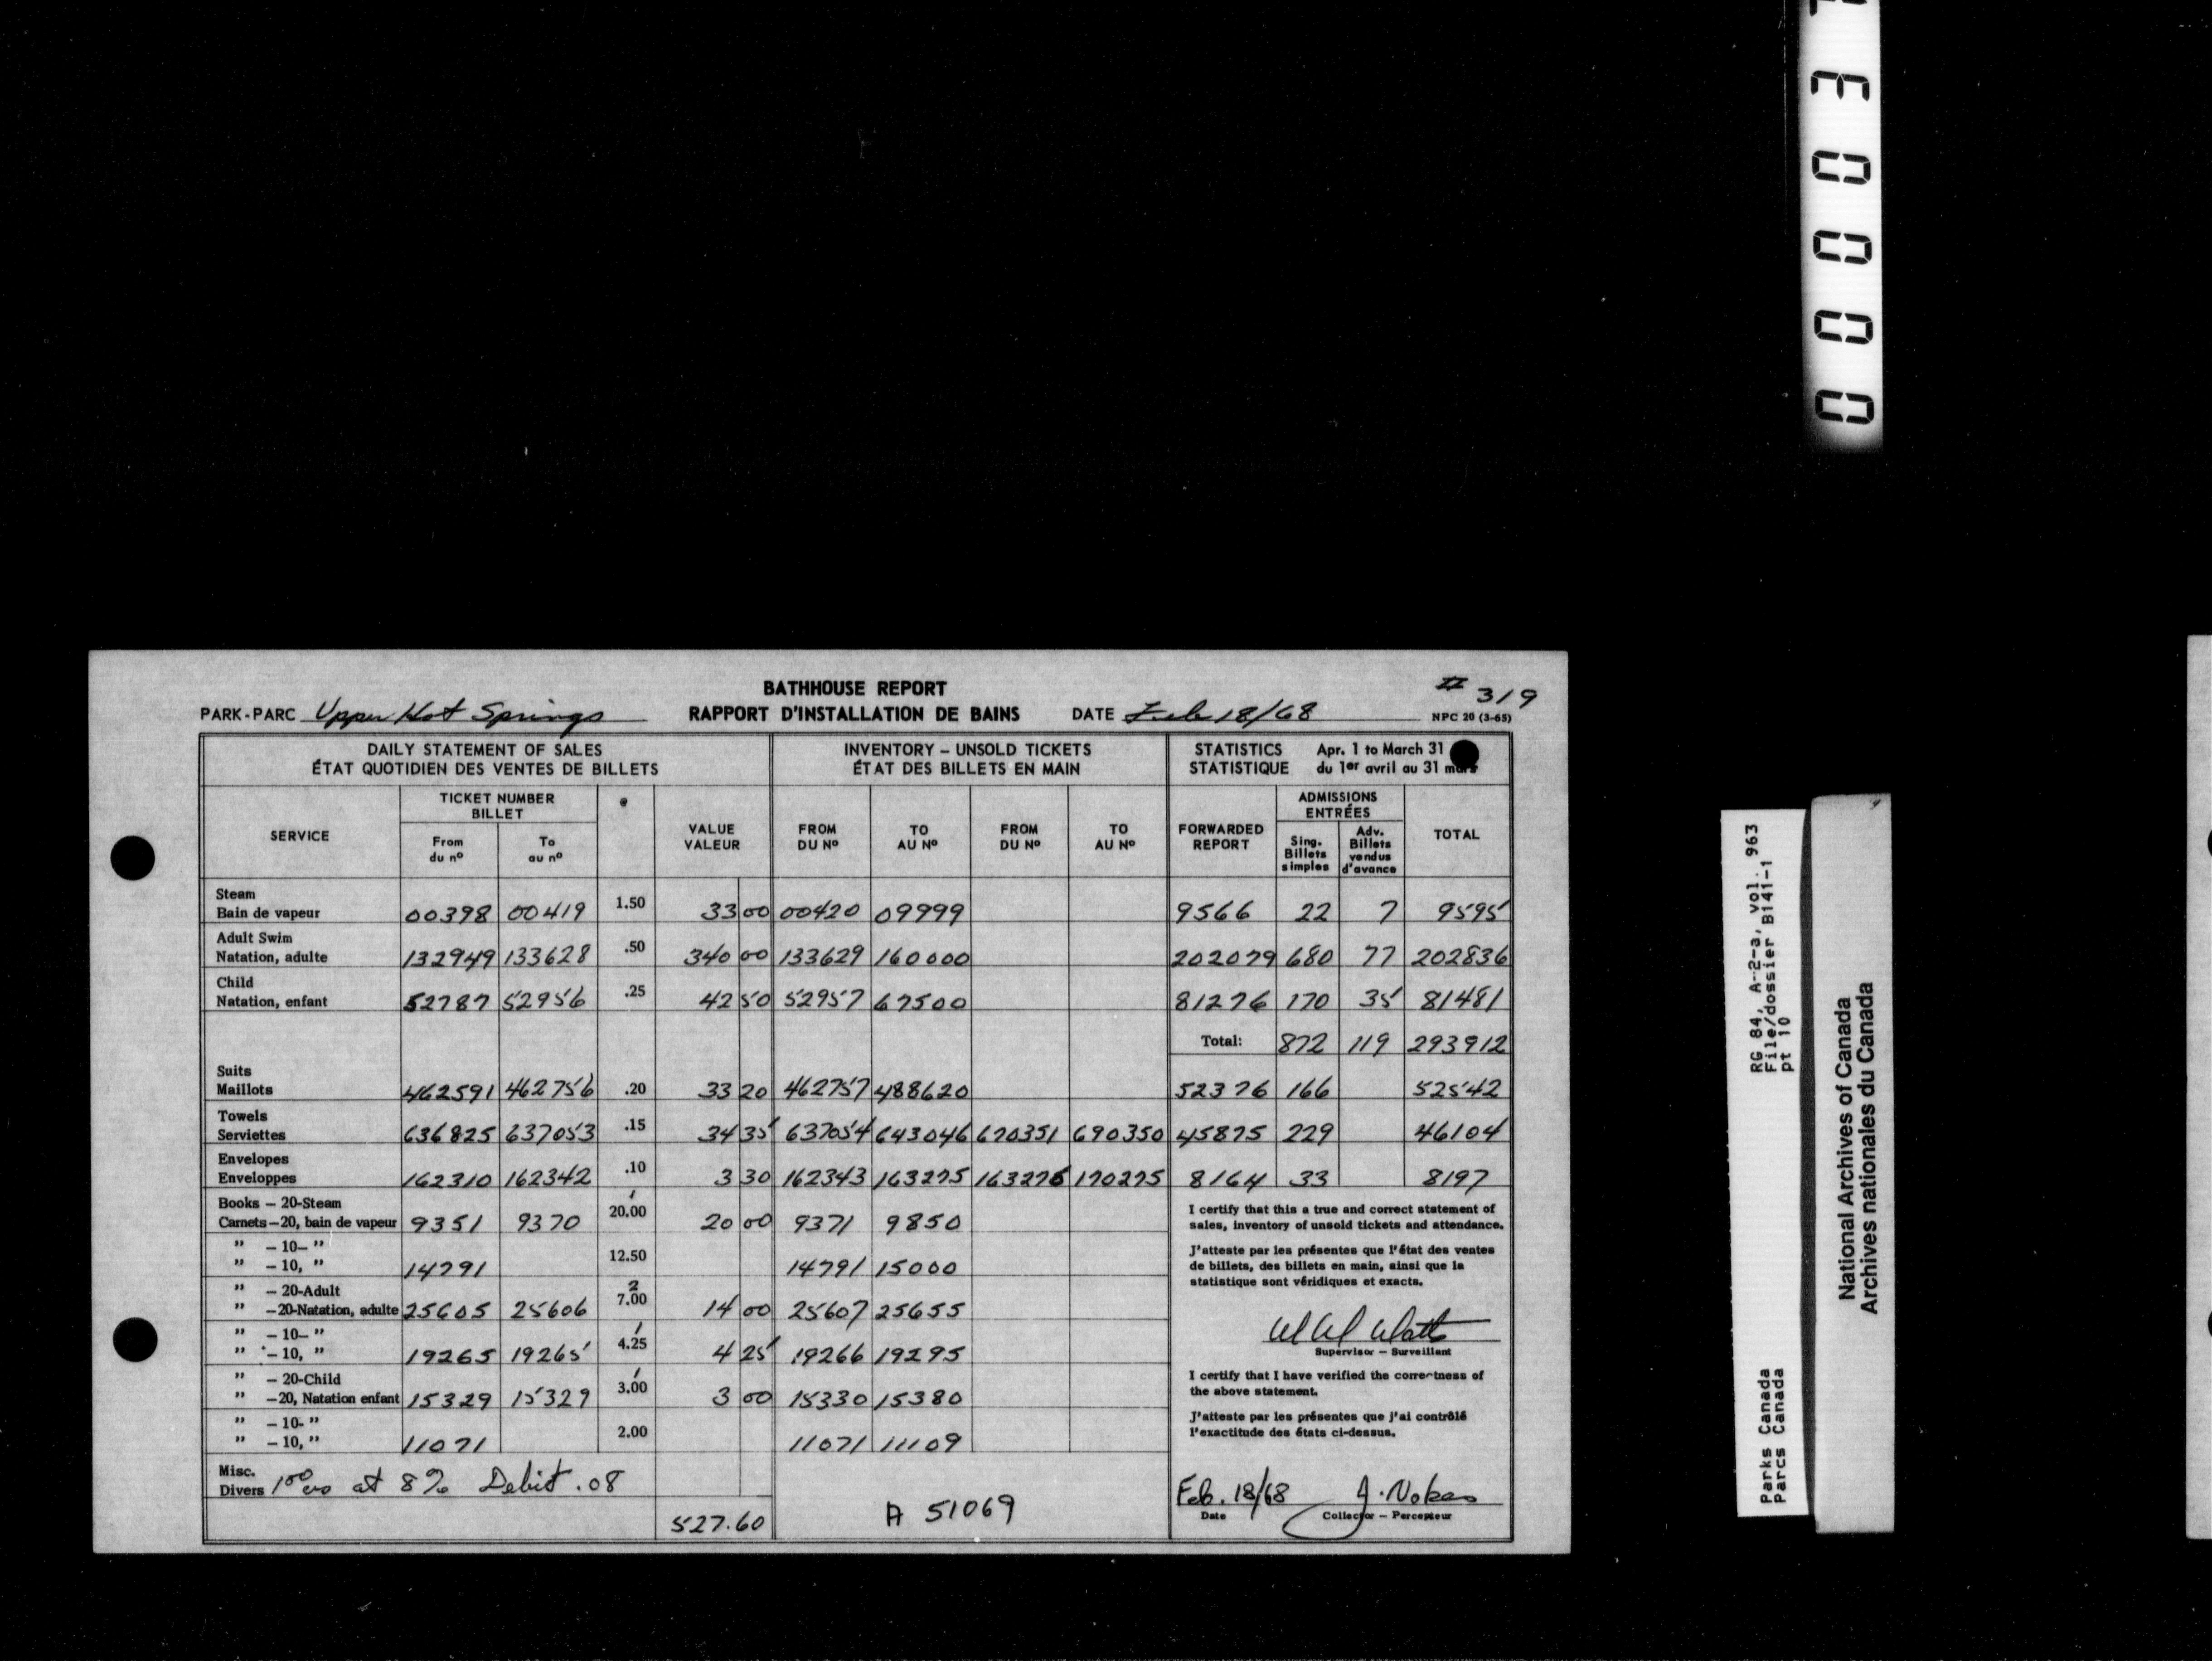 BATHHOUSE REPORT
# 319
PARK-PARC Upper Hot Springs RAPPORT D'INSTALLATION DE BAINS DATE Feb 18/68 NPC 20 (3-65)
DAILY STATEMENT OF SALES
ÉTAT QUOTIDIEN DES VENTES DE BILLETS
INVENTORY – UNSOLD TICKETS
ÉTAT DES BILLETS EN MAIN
STATISTICS Apr. 1 to March 31
STATISTIQUE du 1er avril au 31 mars
SERVICE
TICKET NUMBER
BILLET
From
du nº
To
au nº
@
VALUE
VALEUR
FROM
DU Nº
TO
AU Nº
FROM
DU Nº
TO
AU Nº
FORWARDED
REPORT
ADMISSIONS
ENTRÉES
Sing.
Billets
simples
Adv.
Billets
vendus
d'avance
TOTAL
Steam
Bain de vapeur 00398 00419 1.50 33 00 00420 09999 9566 22 7 9595
Adult Swim
Natation, adulte 132949 133628 .50 340 00 133629 160000 202079 680 77 202836
Child
Natation, enfant 52787 52956 .25 42 50 52957 67500 81276 170 35 81481
Total: 872 119 293912
Suits
Maillots 462591 462756 .20 33 20 462757 488620 52376 166 52542
Towels
Serviettes 636825 637053 .15 34 35 637054 643046 670351 690350 45875 229 46104
Envelopes
Enveloppes 162310 162342 .10 3 30 162343 163275 163276 170275 8164 33 8197
Books – 20-Steam 1
Carnets–20, bain de vapeur 9351 9370 20.00 20 00 9371 9850
" – 10– "
" – 10, " 14791 12.50 14791 15000
" – 20-Adult 2
" –20-Natation, adulte 25605 25606 7.00 14 00 25607 25655
" – 10– " 1
" – 10, " 19265 19265 4.25 4 25 19266 19295
" – 20-Child 1
" –20, Natation enfant 15329 15329 3.00 3 00 15330 15380
" – 10- "
" – 10, " 11071 2.00 11071 11109
Misc.
Divers 100 at 8% Debit .08
527.60
A 51069
I certify that this a true and correct statement of
sales, inventory of unsold tickets and attendance.
J'atteste par les présentes que l'état des ventes
de billets, des billets en main, ainsi que la
statistique sont véridiques et exacts.
Watts
Supervisor – Surveillant
I certify that I have verified the correctness of
the above statement.
J'atteste par les présentes que j'ai contrôlé
l'exactitude des états ci-dessus.
Feb. 18/68 J. Nokes
Date Collector – Percepteur
RG 84, A-2-a, vol. 963
File/dossier B141-1
pt 10
Parks Canada
Parcs Canada
National Archives of Canada
Archives nationales du Canada